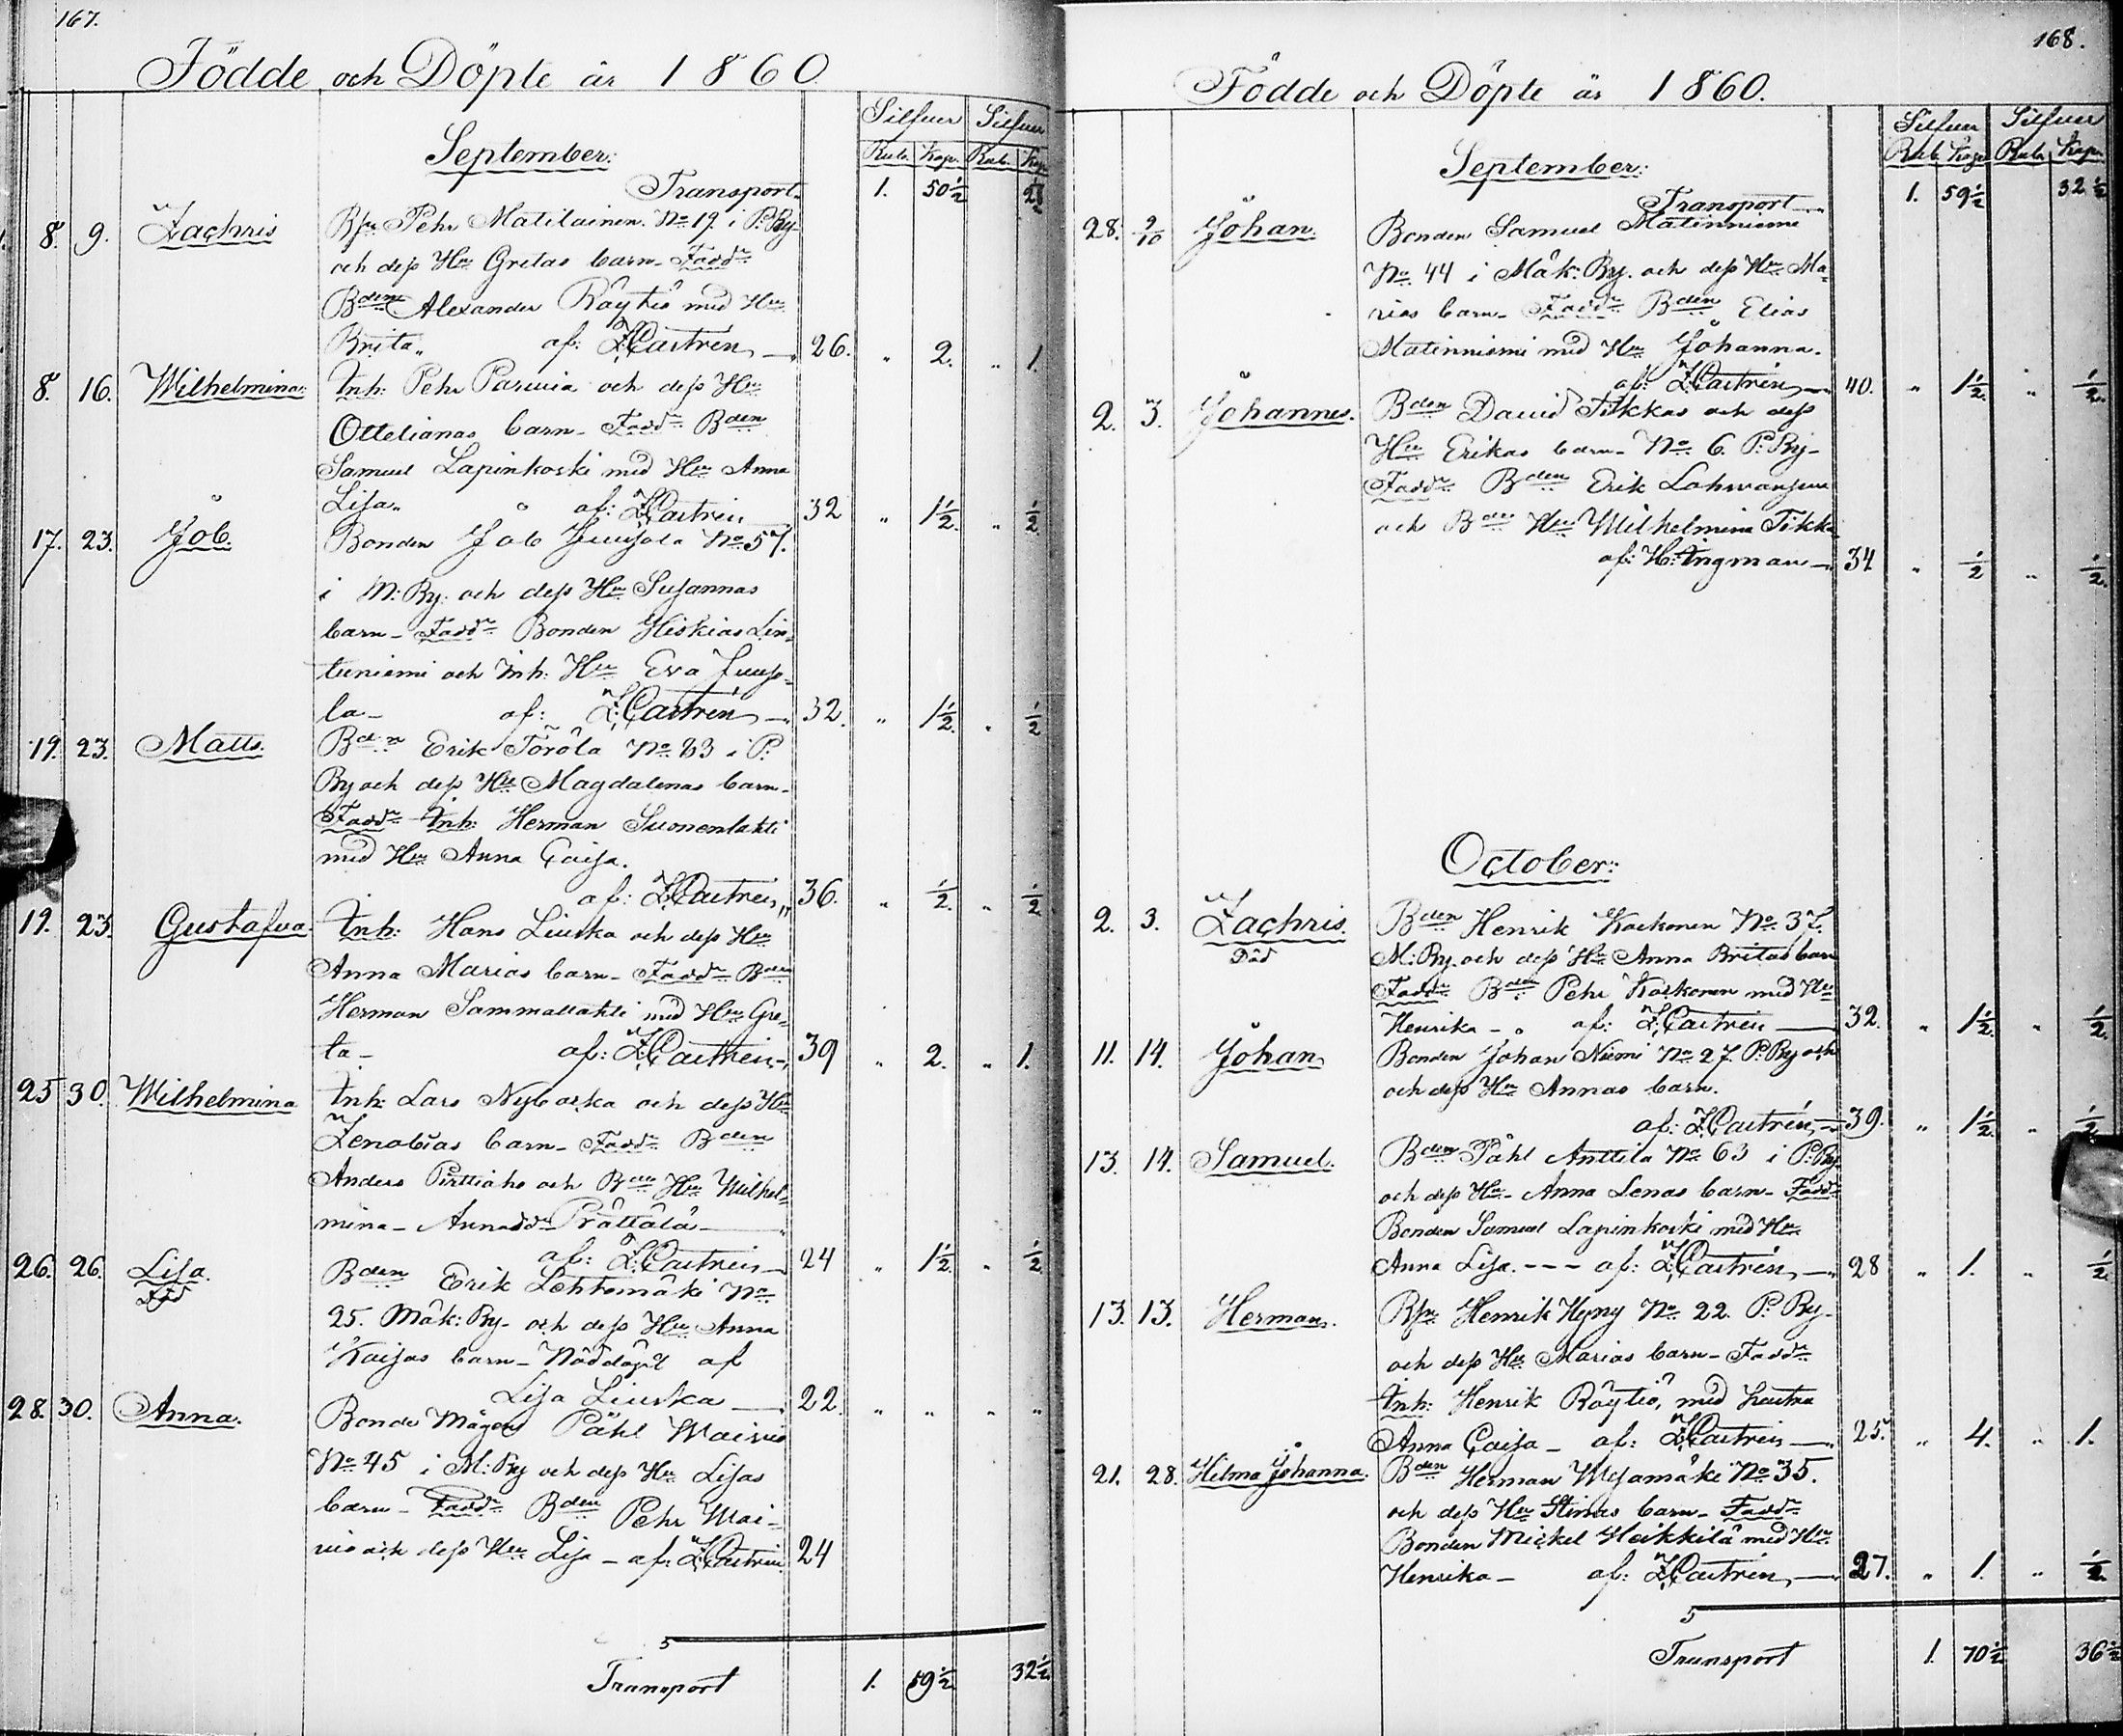 167.
Födde och Döpte år 1860
Silfver Silfver
September: Rub. Kop. Rub. Kop.
Transport 1. 50½ 28
8. 9. Zachris Bfr Pehr Matilainen. No 19. i P. By
och dess Hu Gretas barn - Fadd
Bden Alexander Räytiö med Hu
Brita. af: Z. Castrén 26. " 2. " 1.
8. 16. Wilhelmina Inh: Pehr Parvia och dess Hu
Ottelianas barn - Fadd Bden
Samuel Lapinkoski med Hu Anna
Lisa. af: Z. Castrén 32 " 1½. " ½
17. 23. Job. Bonden Job Juujola No 57.
i M: By. och dess Hu Susannas
barn - Fadd Bonden Hiskias Lin-
tuniemi och Inh. Hu Eva Juujo-
la - af: Z. Castrén 32. " 1½. " ½
19. 23. Matts. Bden Erik Törölä No 83 i P.
By och dess Hu Magdalenas barn -
Fadd Inh: Herman Suonenlahti
med Hu Anna Caisa.
af: Z. Castrén 36. " ½. " ½
19. 23. Gustafva. Inh: Hans Liuska och dess Hu
Anna Marias barn - Fadd Bden
Herman Sammallahti med Hu Gre-
ta - af: Z. Castrén 39 " 2. " 1.
25 30. Wilhelmina Inh: Lars Nybacka och dess Hu
Zenobias barn - Fadd Bden
Anders Pirttiaho och Bden Hu Wilhel-
mina - Annadr Prättälä
af: Z. Castrén 24 " 1½. " ½
26. 26. Lisa. Bden Erik Lehtomäki No
Död
25. Mäk: By - och dess Hu Anna
Kaisas barn - Nöddöpt af
Lisa Liuska 22. " " " "
28. 30. Anna. Bonde Mågen Påhl Wainio
No 45 i M: By och dess Hu Lisas
barn - Fadd Bden Pehr Wai-
nio och dess Hu Lisa - af: Z. Castrén 24
5
Transport 1. 59½ 32½
168.
Födde och Döpte år 1860.
Silfver Silfver
September: Rub. Kop. Rub. Kop.
Transport 1. 59½ 32½
28. 9/10 Johan. Bonden Samuel Matinniemi
No 44 i Mäk: By. och dess Hu Ma-
rias barn - Fadd Bden Elias
Matinniemi med Hu Johanna.
af: Z. Castrén 40. " 1½. " ½.
2. 3. Johannes. Bden David Tikkas och dess
Hu Erikas barn - No 6. P. By -
Fadd Bden Erik Lohvansuu
och Bden Hu Wilhelmina Tikka
af: H: Ingman 34 " ½ " ½.
October:
2. 3. Zachris. Bden Henrik Koskonen No 37.
Död M: By. och dess Hu Anna Britas barn
Fadd Bden Pehr Koskonen med Hu
Henrika - af: Z. Castrén 32. " 1½. " ½
11. 14. Johan Bonden Johan Niemi No 27. P. By och
och dess Hu Annas barn.
af: Z. Castrén 39. " 1½. " ½
13. 14. Samuel. Bden Påhl Anttila No 63 i P. By
och dess Hu - Anna Lenas barn - Fadd
Bonden Samuel Lapinkoski med Hu
Anna Lisa. --- af: Z. Castrén 28 " 1. " ½
13. 13. Herman. Bfr Henrik Hyry No 22. P. By -
och dess Hu Marias barn - Fadd
Inh: Henrik Räytiö, med hustru
Anna Caisa - af: Z. Castrén 25. " 4. " 1.
21. 28. Hilma Johanna. Bden Herman Ylisamäki No 35.
och dess Hu Stinas barn - Fadd
Bonden Mickel Heikkilä med Hu
Henrika - af: Z. Castrén 27. " 1. " ½.
5
Transport 1. 70½ 36½